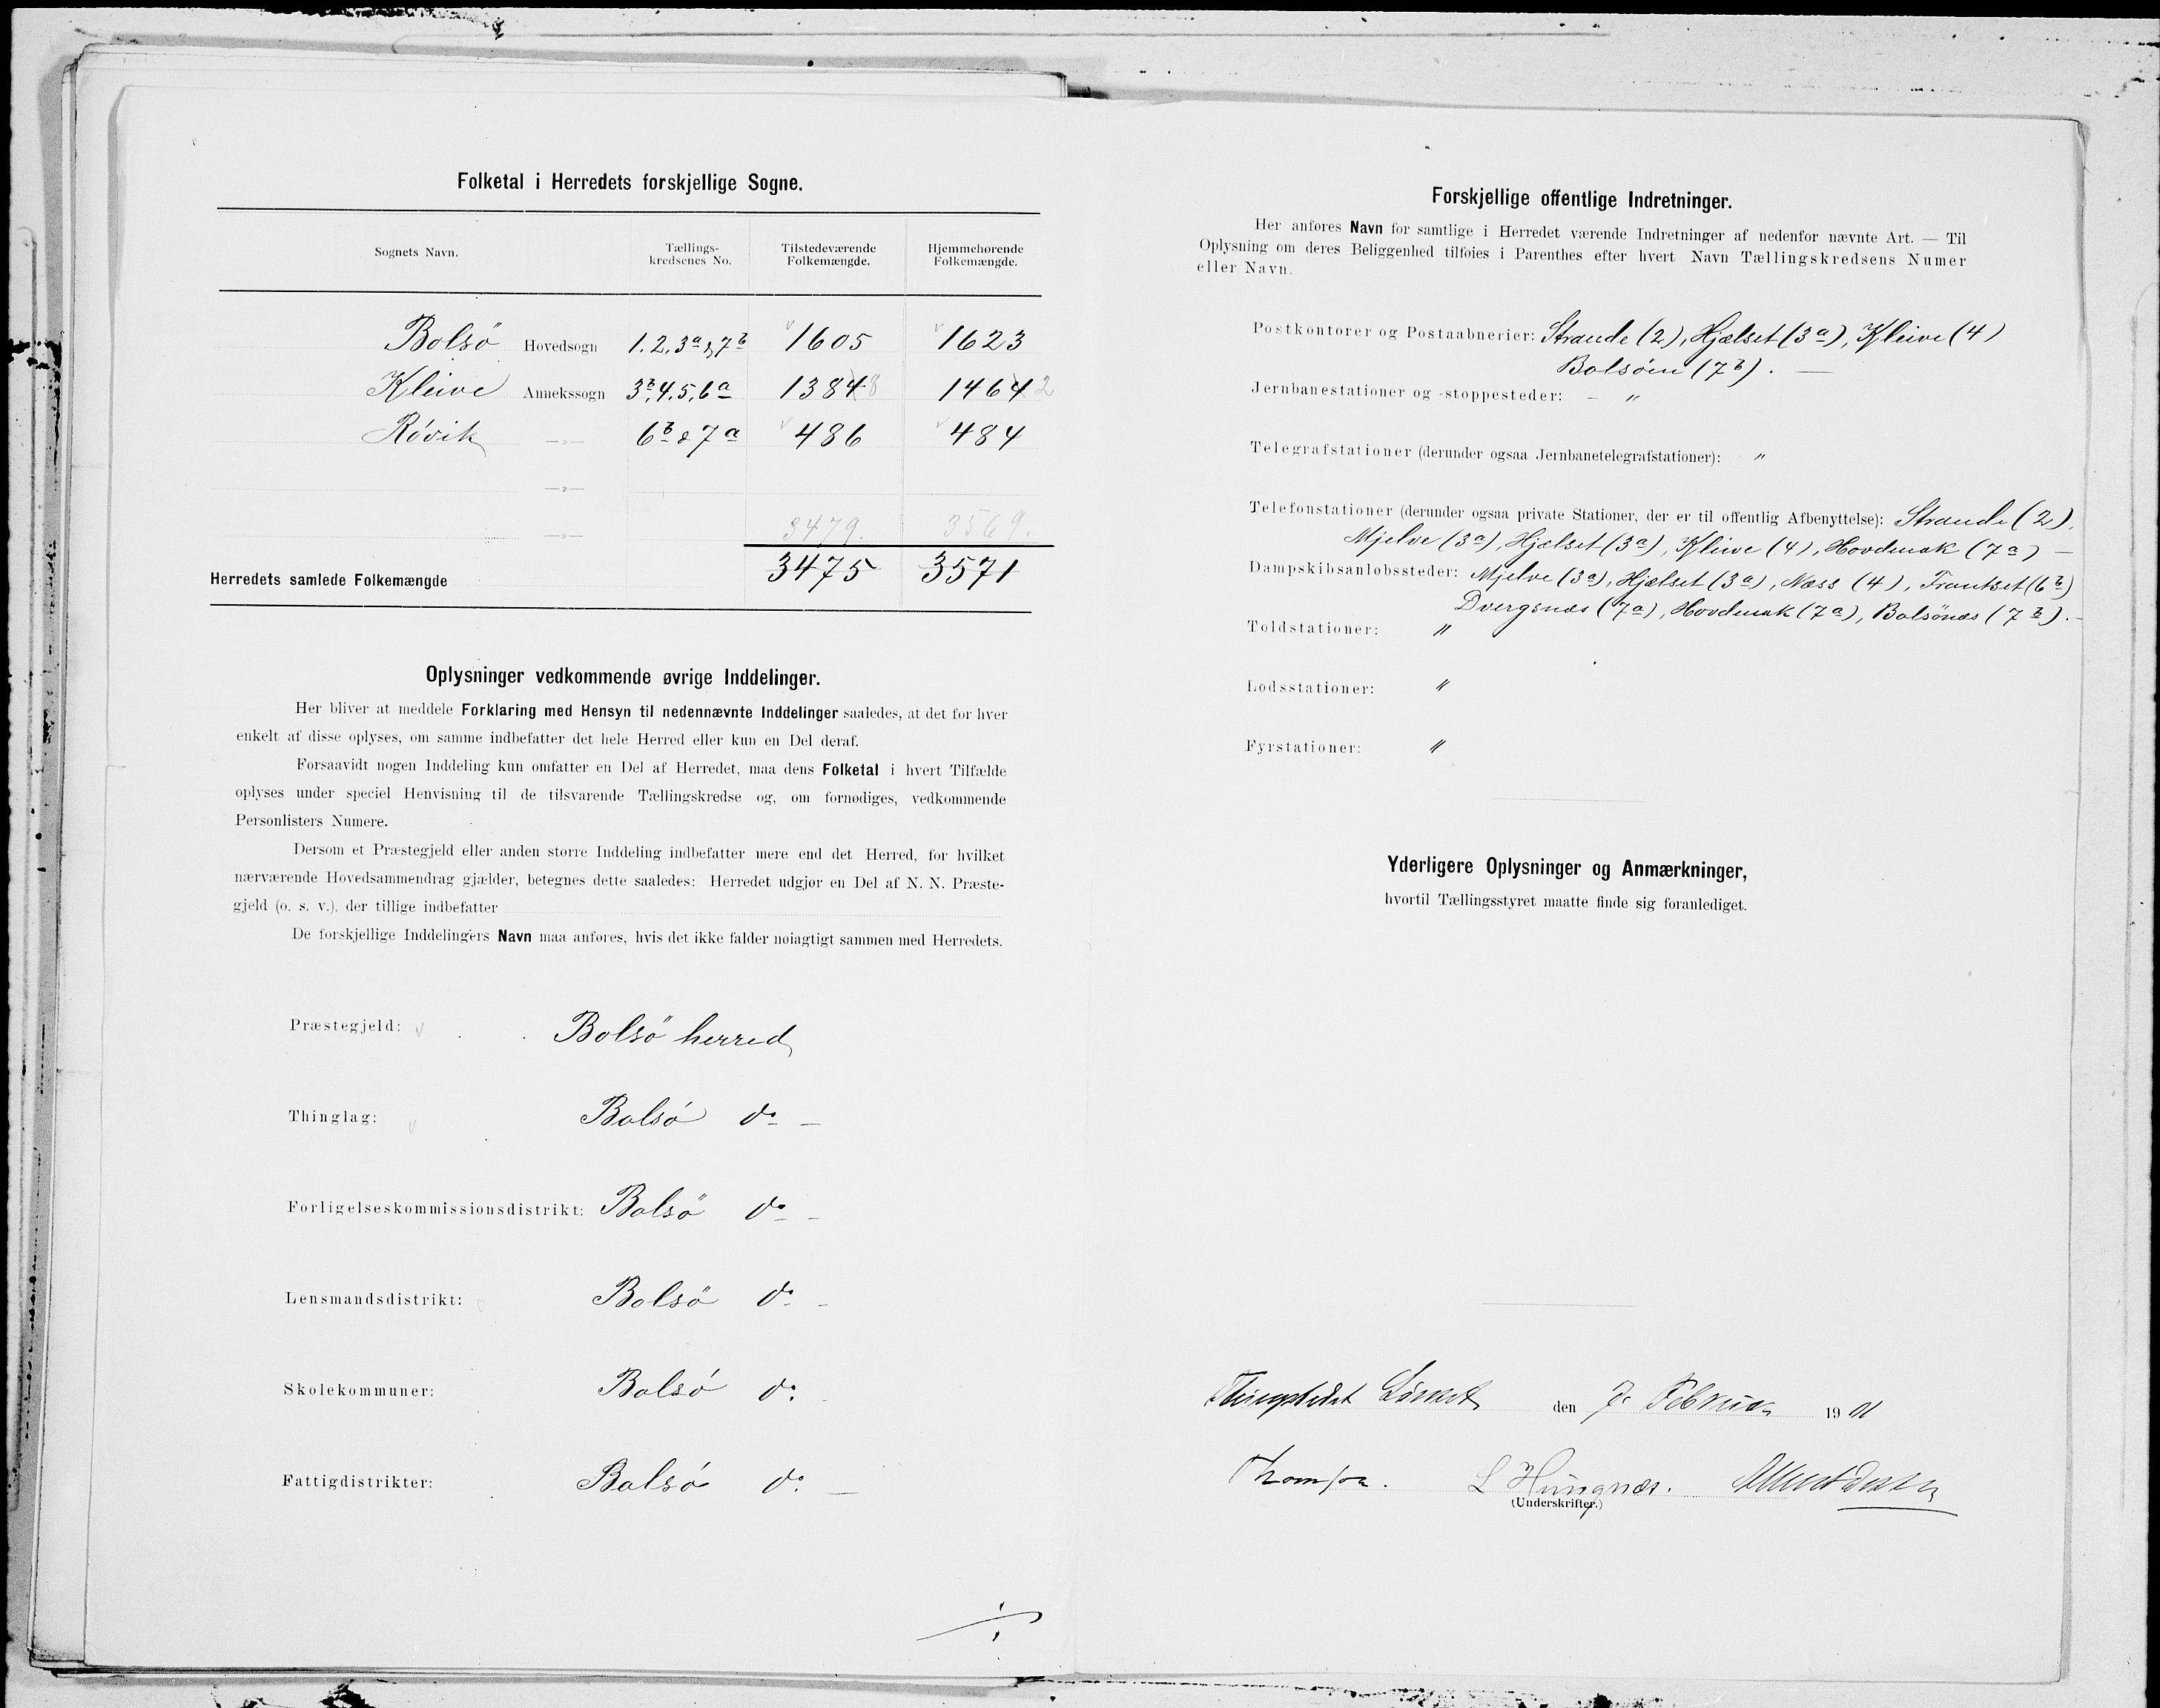 Folketal i Herredets forskjellige Sogne.
Sognets Navn. Tællings-kredsenes No. Tilstedeværende Folkemængde. Hjemmehørende Folkemængde.
Bolsö Hovedsogn 1. 2, 3a & 7b 1605 1623
Kleive Annekssogn 3b, 4, 5, 6a 1384 8 1464 2
Røvik —»— 6b & 7a 486 484
—»—
—»— 3479. 3569.
Herredets samlede Folkemængde 3475 3571
Oplysninger vedkommende øvrige Inddelinger.
Her bliver at meddele Forklaring med Hensyn til nedennævnte Inddelinger saaledes, at det for hver
enkelt af disse oplyses, om samme indbefatter det hele Herred eller kun en Del deraf.
Forsaavidt nogen Inddeling kun omfatter en Del af Herredet, maa dens Folketal i hvert Tilfælde
oplyses under speciel Henvisning til de tilsvarende Tællingskredse og, om fornødiges, vedkommende
Personlisters Numere.
Dersom et Præstegjeld eller anden større Inddeling indbefatter mere end det Herred, for hvilket
nærværende Hovedsammendrag gjælder, betegnes dette saaledes: Herredet udgjør en Del af N. N. Præste-
gjeld (o. s. v.), der tillige indbefatter
De forskjellige Inddelingers Navn maa anføres, hvis det ikke falder nøiagtigt sammen med Herredets.
Præstegjeld: Bolsö herred
Thinglag: Bolsö do —
Forligelseskommissionsdistrikt: Bolsö do —
Lensmandsdistrikt: Bolsö do —
Skolekommuner: Bolsö do
Fattigdistrikter: Bolsö do —
Forskjellige offentlige Indretninger.
Her anføres Navn for samtlige i Herredet værende Indretninger af nedenfor nævnte Art. — Til
Oplysning om deres Beliggenhed tilføies i Parenthes efter hvert Navn Tællingskredsens Numer
eller Navn.
Postkontorer og Postaabnerier: Strande (2), Hjelset (3a), Kleive (4)
Bolsöen (7b). —
Jernbanestationer og -stoppesteder: – "
Telegrafstationer (derunder ogsaa Jernbanetelegrafstationer): "
Telefonstationer (derunder ogsaa private Stationer, der er til offentlig Afbenyttelse): Strande (2),
Mjelve (3a), Hjelset (3a), Kleive (4), Hovdenak (7a) —
Dampskibsanløbssteder: Mjelve (3a), Hjelset (3a), Næss (4), (6b)
Dvergsnæs (7a), Hovdenak (7a), Bolsönæs (7b). -
Toldstationer: "
Lodsstationer: "
Fyrstationer: "
Yderligere Oplysninger og Anmærkninger,
hvortil Tællingsstyret maatte finde sig foranlediget.
Thingstedet den 7. Februar 1901
L Hungnes.
(Underskrifter.)